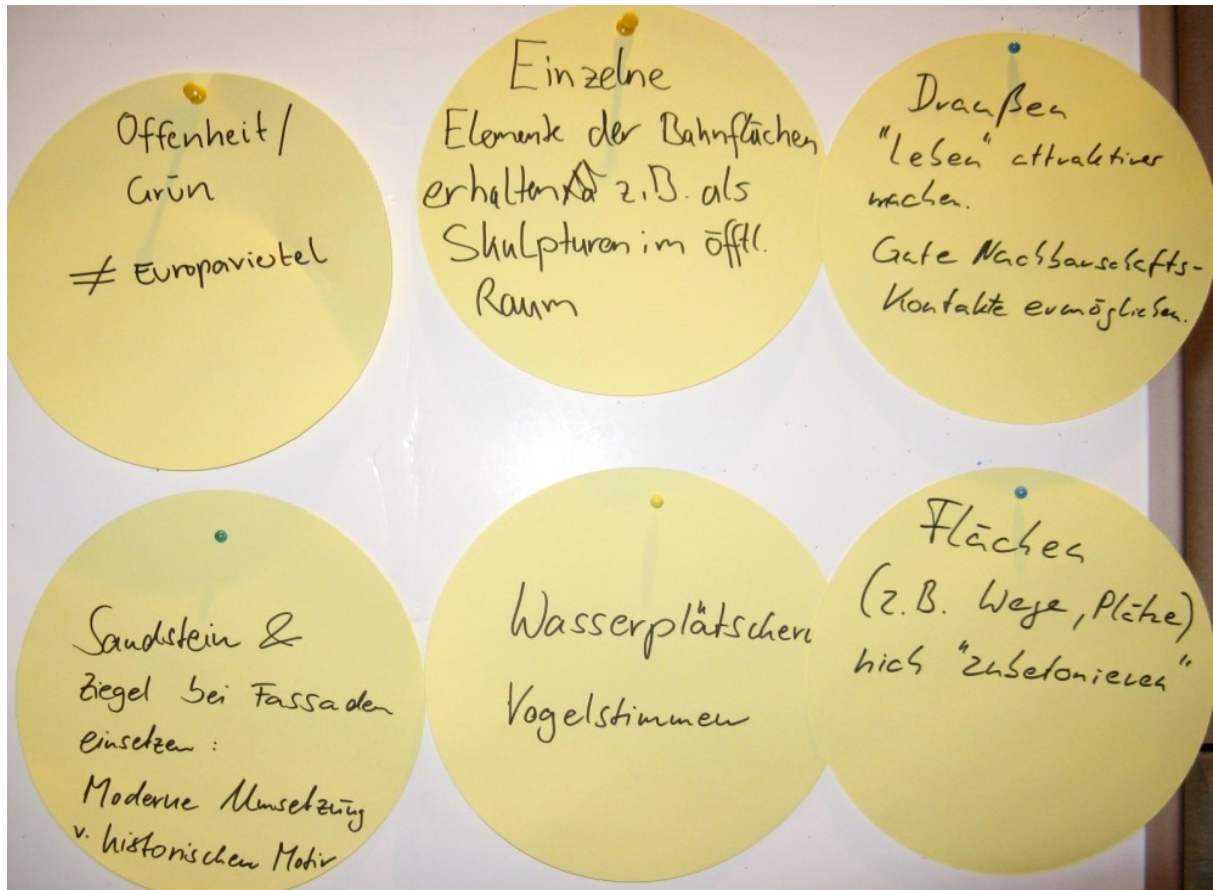 Offenheit/
Grün
≠ Europaviertel
Einzelne
Elemente der Bahnflächen
erhalten z.B. als
Skulpturen im öfftl.
Raum
Draußen
"leben" attraktiver
machen.
Gute Nachbarschafts-
Kontakte ermöglichen.
Sandstein &
Ziegel bei Fassaden
einsetzen:
Moderne Umsetzung
v. historischen Motiv
Wasserplätschern
Vogelstimmen
Flächen
(z.B. Wege, Plätze)
nich "zubetonieren"